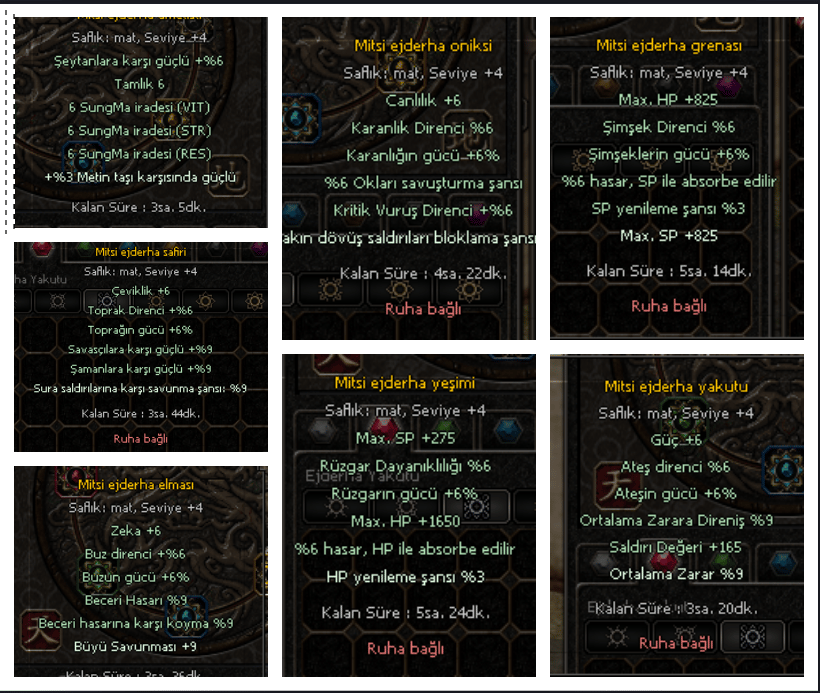 Saflık: mat, Seviye +4
Şeytanlara karşı güçlü +%6
Tamlık 6
6 SungMa iradesi (VIT)
6 SungMa iradesi (STR)
6 SungMa iradesi (RES)
+%3 Metin taşı karşısında güçlü
Kalan Süre : 3sa. 5dk.
Mitsi ejderha safiri
Saflık: mat, Seviye +4
Çeviklik +6
Toprak Direnci +%6
Toprağın gücü +6%
Savaşçılara karşı güçlü +%9
Şamanlara karşı güçlü +%9
Sura saldırılarına karşı savunma şansı: %9
Kalan Süre : 3sa. 44dk.
Ruha bağlı
Mitsi ejderha elması
Saflık: mat, Seviye +4
Zeka +6
Buz direnci +%6
Buzun gücü +6%
Beceri Hasarı %9
Beceri hasarına karşı koyma %9
Büyü Savunması +9
Kalan Süre : 3sa. 36dk.
Mitsi ejderha oniksi
Saflık: mat, Seviye +4
Canlılık +6
Karanlık Direnci %6
Karanlığın gücü +6%
%6 Okları savuşturma şansı
Kritik Vuruş Direnci +%6
akın dövüş saldırıları bloklama şansı
Kalan Süre : 4sa. 22dk.
Ruha bağlı
Mitsi ejderha yeşimi
Saflık: mat, Seviye +4
Max. SP +275
Rüzgar Dayanıklılığı %6
Ejderha Yakutu
Rüzgarın gücü +6%
Max. HP +1650
%6 hasar, HP ile absorbe edilir
HP yenileme şansı %3
Kalan Süre : 5sa. 24dk.
Ruha bağlı
Mitsi ejderha grenası
Saflık: mat, Seviye +4
Max. HP +825
Şimşek Direnci %6
Şimşeklerin gücü +6%
%6 hasar, SP ile absorbe edilir
SP yenileme şansı %3
Max. SP +825
Kalan Süre : 5sa. 14dk.
Ruha bağlı
Mitsi ejderha yakutu
Saflık: mat, Seviye +4
Güç +6
Ateş direnci %6
Ateşin gücü +6%
Ortalama Zarara Direniş %9
Saldırı Değeri +165
Ortalama Zarar %9
Kalan Süre : 3sa. 20dk.
Ruha bağlı